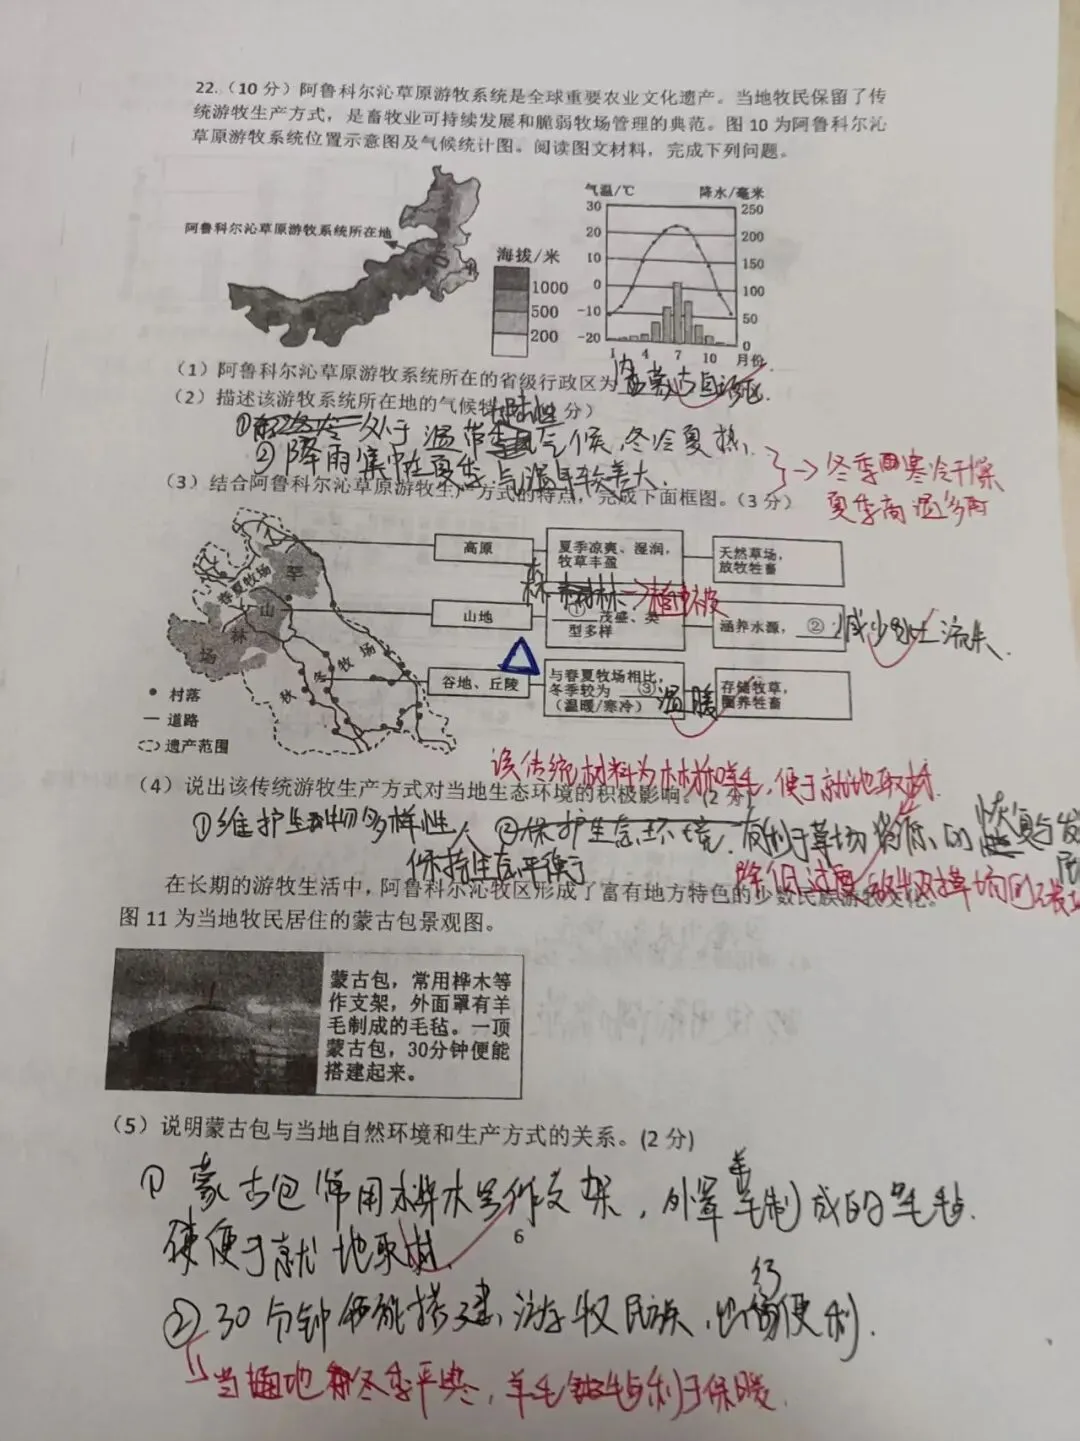 22.（10 分）阿鲁科尔沁草原游牧系统是全球重要农业文化遗产。当地牧民保留了传
统游牧生产方式，是畜牧业可持续发展和脆弱牧场管理的典范。图 10 为阿鲁科尔沁
草原游牧系统位置示意图及气候统计图。阅读图文材料，完成下列问题。
阿鲁科尔沁草原游牧系统所在地
海拔/米
1000
500
200
气温/℃ 降水/毫米
30 250
20 200
10 150
0 100
-10 50
-20 0
1 4 7 10 月份
（1）阿鲁科尔沁草原游牧系统所在的省级行政区为 内蒙古自治区.
（2）描述该游牧系统所在地的气候特 大陆性 分）
①处于温带气候,冬冷夏热,
②降雨集中在夏季,气温年较差大.
→冬季寒冷干燥
夏季高温多雨
（3）结合阿鲁科尔沁草原游牧生产方式的特点，完成下面框图。（3 分）
高原
夏季凉爽、湿润，
牧草丰盈
天然草场，
放牧牲畜
森林→植被
山地
①茂盛、类
型多样
涵养水源，② 减少水土流失.
谷地、丘陵
与春夏牧场相比，
冬季较为 ③ 温暖
（温暖/寒冷）
存储牧草，
圈养牲畜
春夏牧场
罕
山
林
场
秋冬牧场
村落
道路
遗产范围
该传统材料为桦木和羊毛,便于就地取材.
（4）说出该传统游牧生产方式对当地生态环境的积极影响。（2 分）
①维护生物多样性 ②保护生态环境,有利于草场资源的恢复与发展
保持生态平衡
降低过度放牧对草场的
在长期的游牧生活中，阿鲁科尔沁牧区形成了富有地方特色的少数民族游牧文化。
图 11 为当地牧民居住的蒙古包景观图。
蒙古包，常用桦木等
作支架，外面罩有羊
毛制成的毛毡。一顶
蒙古包，30分钟便能
搭建起来。
（5）说明蒙古包与当地自然环境和生产方式的关系。(2 分)
①蒙古包常用桦木等作支架，外罩羊毛制成的毛毡.
便于就地取材.
6
②30分钟便能搭建,游牧民族,出行便利.
当地冬季严寒,羊毛毡利于保暖.